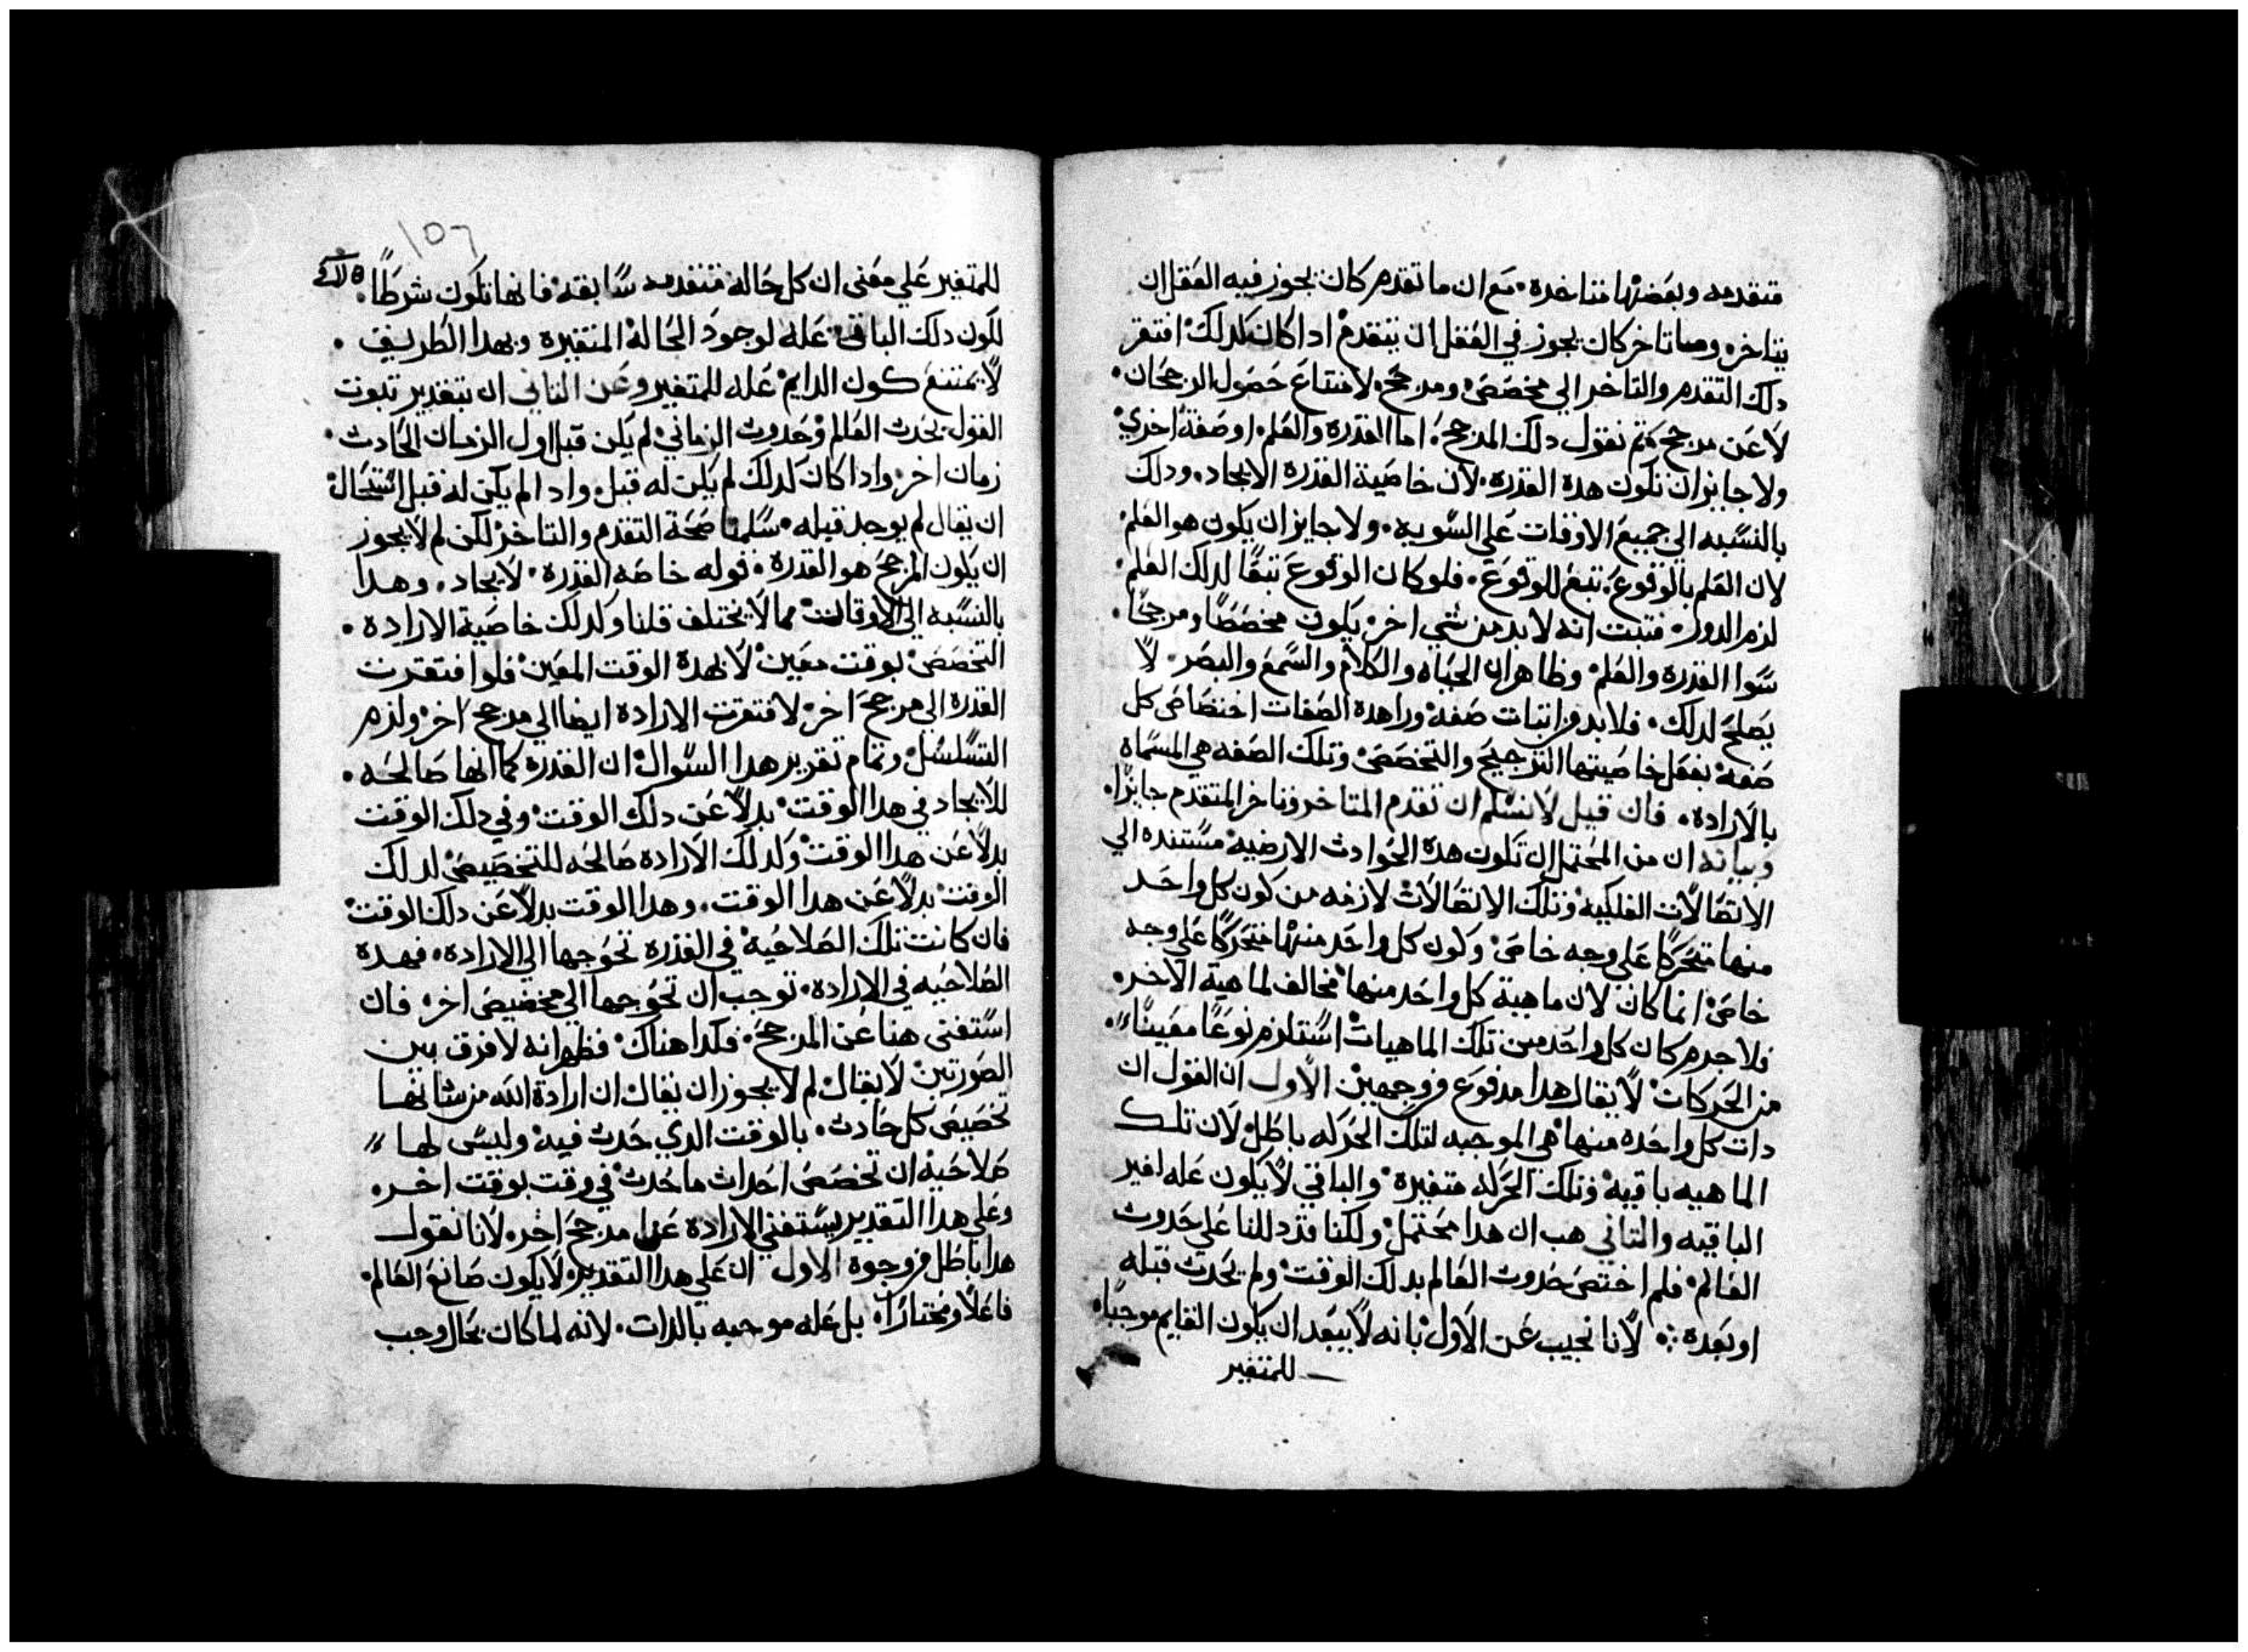 متقدمه وبعضها متاخره. مع ان ما تقدم كان يجوز فيه العقل ان
يتاخر. وما تاخر كان يجوز في العقل ان يتقدم ادا كان كدلك افتقر
دلك التقدم والتاخر الي مخصص ومرجح لامتناع حصول الرجحان.
لا عن مرجح ثم نقول دلك المرجح. اما القدره والعلم. او صفة اخري
ولا جايز ان تكون هده القدرة. لان خاصية القدرة الايجاد. ودلك
بالنسبه الي جميع الاوقات علي السويه. ولا جايز ان يكون هو العلم
لان العلم بالوقوع. تبع للوقوع. فلو كان الوقوع تبعًا لدلك العلم.
لزم الدور. فتبت انه لا بد من شي اخر يكون مخصصًا ومرجحًا.
سوا القدره والعلم وظاهر ان الحياه والكلام والسمع والبصر. لا
يصلح لدلك. فلا بد من اتبات صفة ورا هدة الصفات اختصاص كل
صفة بفعل خاصيتها الترجيح والتخصص وتلك الصفه هي المسماه
بالارادة. فان قيل لا نسلم ان تقدم المتاخر وتاخر المتقدم جايزًا.
وبيانه ان من المحتمل ان تكون هدة الحوادث الارضيه مستنده الي
الاتصالات الفلكيه وتلك الاتصالات لازمه من كون كل واحد
منها متحركًا علي وجه خاص وكون كل واحد منها متحركًا علي وجه
خاص انما كان لان ماهية كل واحد منها مخالف لماهية الاخر.
فلا جرم كان كل واحد من تلك الماهيات استلزم نوعًا معينًا
من الحركات لا يقال هدا مدفوع من وجهين الاول ان القول ان
دات كل واحده منها هي الموجبه لتلك الحركه باطل لان تلك
الماهيه باقية وتلك الحركه متغيرة والباقي لا يكون عله لغير
الباقيه والتاني هب ان هدا محتمل ولكنا قد دللنا علي حدوث
العالم فلم اختص حدوث العالم بدلك الوقت ولم يحدث قبله
او بعدة لانا نجيب عن الاول بانه لا يبعد ان يكون القايم موجبا.
للمتغير
١٥٦
للمتغير علي معني ان كل حالة متقدمه سابقة فانها تكون شرطًا.
لكون دلك الباقي عله لوجود الحالة المتغيرة وبهدا الطريق.
لا يمتنع كون الدايم عله للمتغير وعن التاني ان بتقدير تبوت
القول بحدث العالم وحدوث الزماني لم يكن قبل اول الزمان الحادث.
زمان اخر وادا كان كدلك لم يكن له قبل وادا لم يكن له قبل استحال
ان يقال لم يوجد قبله. سلمنا صحة التقدم والتاخر لكن لم لا يجوز
ان يكون المرجح هو القدرة. قوله خاصه القدرة. لايجاد. وهدا
بالنسبه الي الاوقات مما لا يختلف قلنا وكدلك خاصية الارادة.
التخصص بوقت معين لا بهدة الوقت المعين فلو افتقرت
القدرة الي مرجح اخر لافتقرت الارادة ايضا الي مرجح اخر ولزم
التسلسل وتمام تقرير هدا السوال ان القدرة كما انها صالحه.
للايجاد في هدا الوقت بدلًا عن دلك الوقت وفي دلك الوقت
بدلًا عن هدا الوقت وكدلك الارادة صالحه للتخصيص لدلك
الوقت بدلًا عن هدا الوقت. وهدا الوقت بدلًا عن دلك الوقت
فان كانت تلك الصلاحية في القدرة تحوجها الي الارادة. فهدة
الصلاحيه في الارادة. توجب ان تحوجها الي مخصيص اخر. فان
استغني هنا عن المرجح. فكدا هناك فظهر انه لا فرق بين
الصورتين لا يقال لم لا يجوز ان يقال ان ارادة الله من شانها
تخصيص كل حادث. بالوقت الدي حدث فيه وليس لها
صلاحية ان تخصص احداث ما حدث في وقت بوقت اخر.
وعلي هدا التقدير يستغني الارادة عن مرجح اخر. لانا نقول
هدا باطل من وجوة الاول ان علي هدا التقدير لا يكون صانع العالم.
فاعلًا ومختارًا. بل عله موجبه بالدات. لانه لما كان بحال وجب